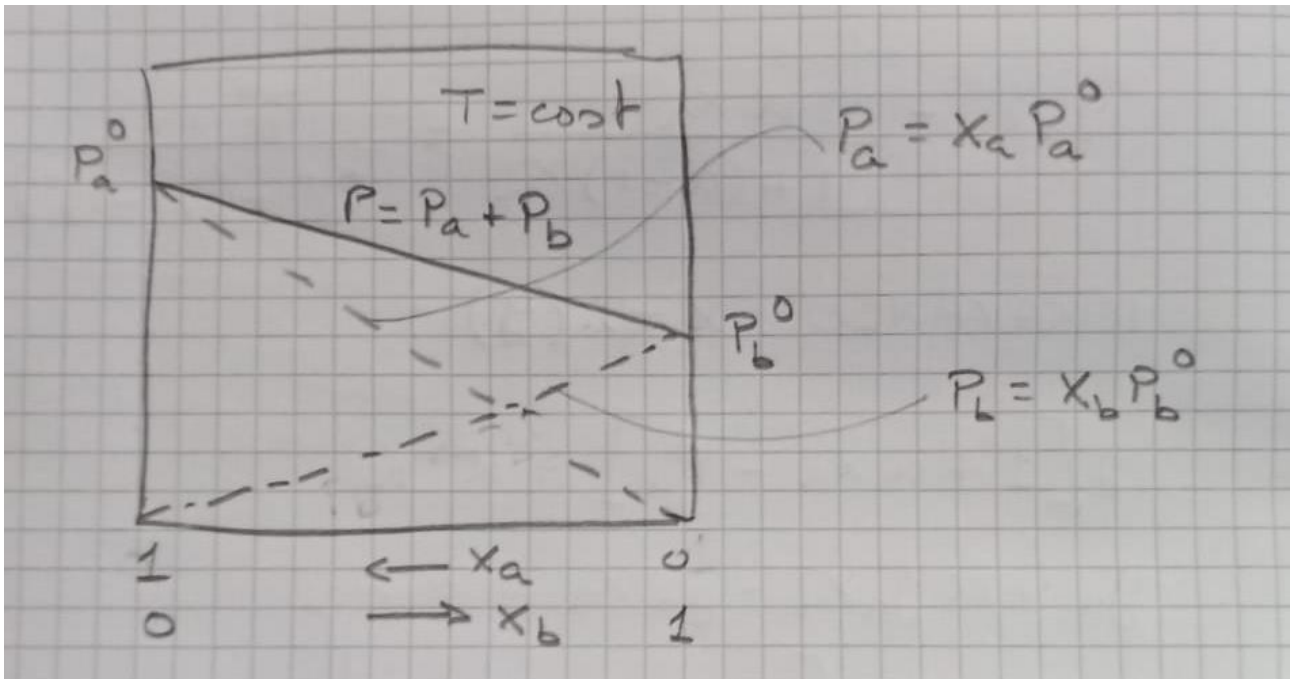 T = cost
P_a^0
P = P_a + P_b
P_a = x_a P_a^0
P_b^0
P_b = x_b P_b^0
1 ← x_a 0
0 → x_b 1